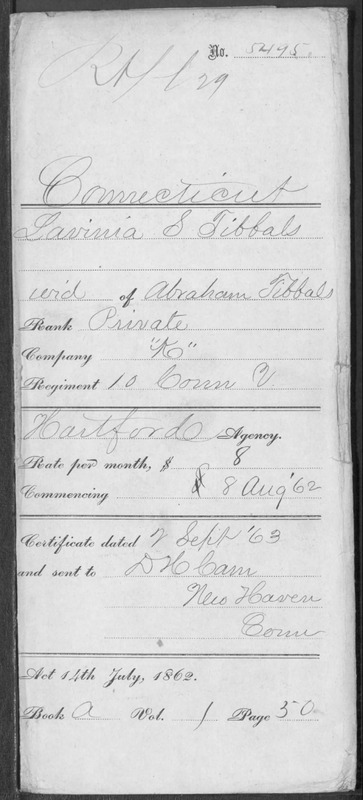 No. 5495
Connecticut
Lavinia S Tibbals
wid of Abraham Tibbals
Rank Private
Company "K"
Regiment 10 Conn V
Hartford Agency.
Rate per month, $ 8
Commencing 8 Aug '62
Certificate dated 2 Sept '63
and sent to D H Carr
New Haven
Conn
Act 14th July, 1862.
Book A Vol. 1 Page 50